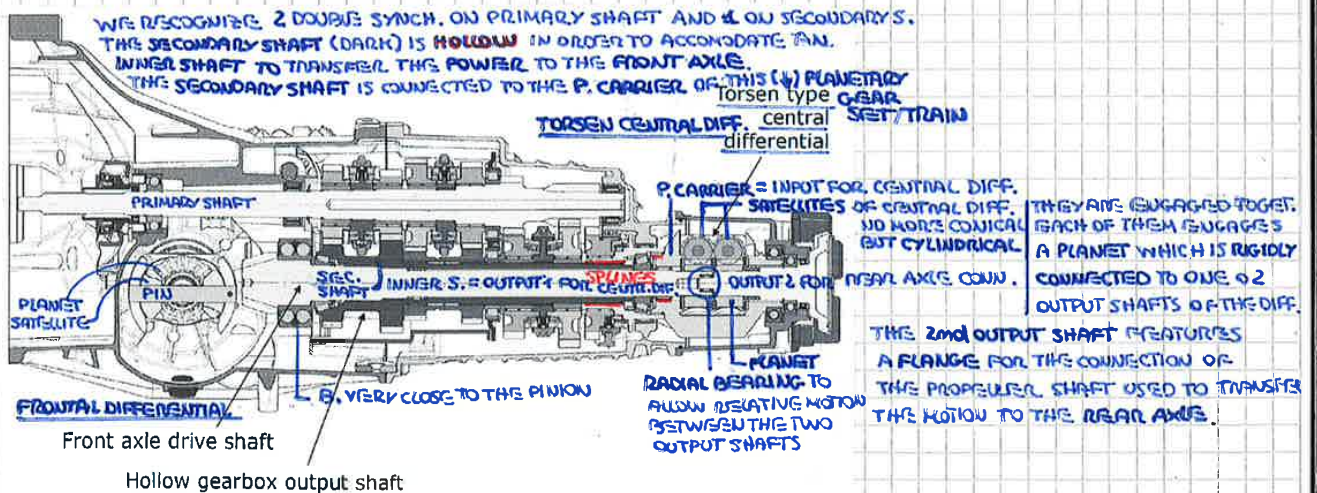 WE RECOGNIZE 2 DOUBLE SYNCH. ON PRIMARY SHAFT AND 1 ON SECONDARY S.
THE SECONDARY SHAFT (DARK) IS HOLLOW IN ORDER TO ACCOMODATE AN.
INNER SHAFT TO TRANSFER THE POWER TO THE FRONT AXLE.
THE SECONDARY SHAFT IS CONNECTED TO THE P. CARRIER OF THIS (↓) PLANETARY
GEAR
SET/TRAIN
Torsen type
central
differential
TORSEN CENTRAL DIFF.
P. CARRIER = INPUT FOR CENTRAL DIFF.
SATELLITES OF CENTRAL DIFF.
NO MORE CONICAL
BUT CYLINDRICAL
THEY ARE ENGAGED TOGET.
EACH OF THEM ENGAGES
A PLANET WHICH IS RIGIDLY
CONNECTED TO ONE O 2
OUTPUT SHAFTS OF THE DIFF.
PRIMARY SHAFT
SEC.
SHAFT
INNER S. = OUTPUT 1 FOR CENTR. DIF.
SPLINES
OUTPUT 2 FOR REAR AXLE CONN.
PLANET
SATELLITE
PIN
THE 2nd OUTPUT SHAFT FEATURES
A FLANGE FOR THE CONNECTION OF
THE PROPELLER SHAFT USED TO TRANSFER
THE MOTION TO THE REAR AXLE.
PLANET
RADIAL BEARING TO
ALLOW RELATIVE MOTION
BETWEEN THE TWO
OUTPUT SHAFTS
B. VERY CLOSE TO THE PINION
FRONTAL DIFFERENTIAL
Front axle drive shaft
Hollow gearbox output shaft